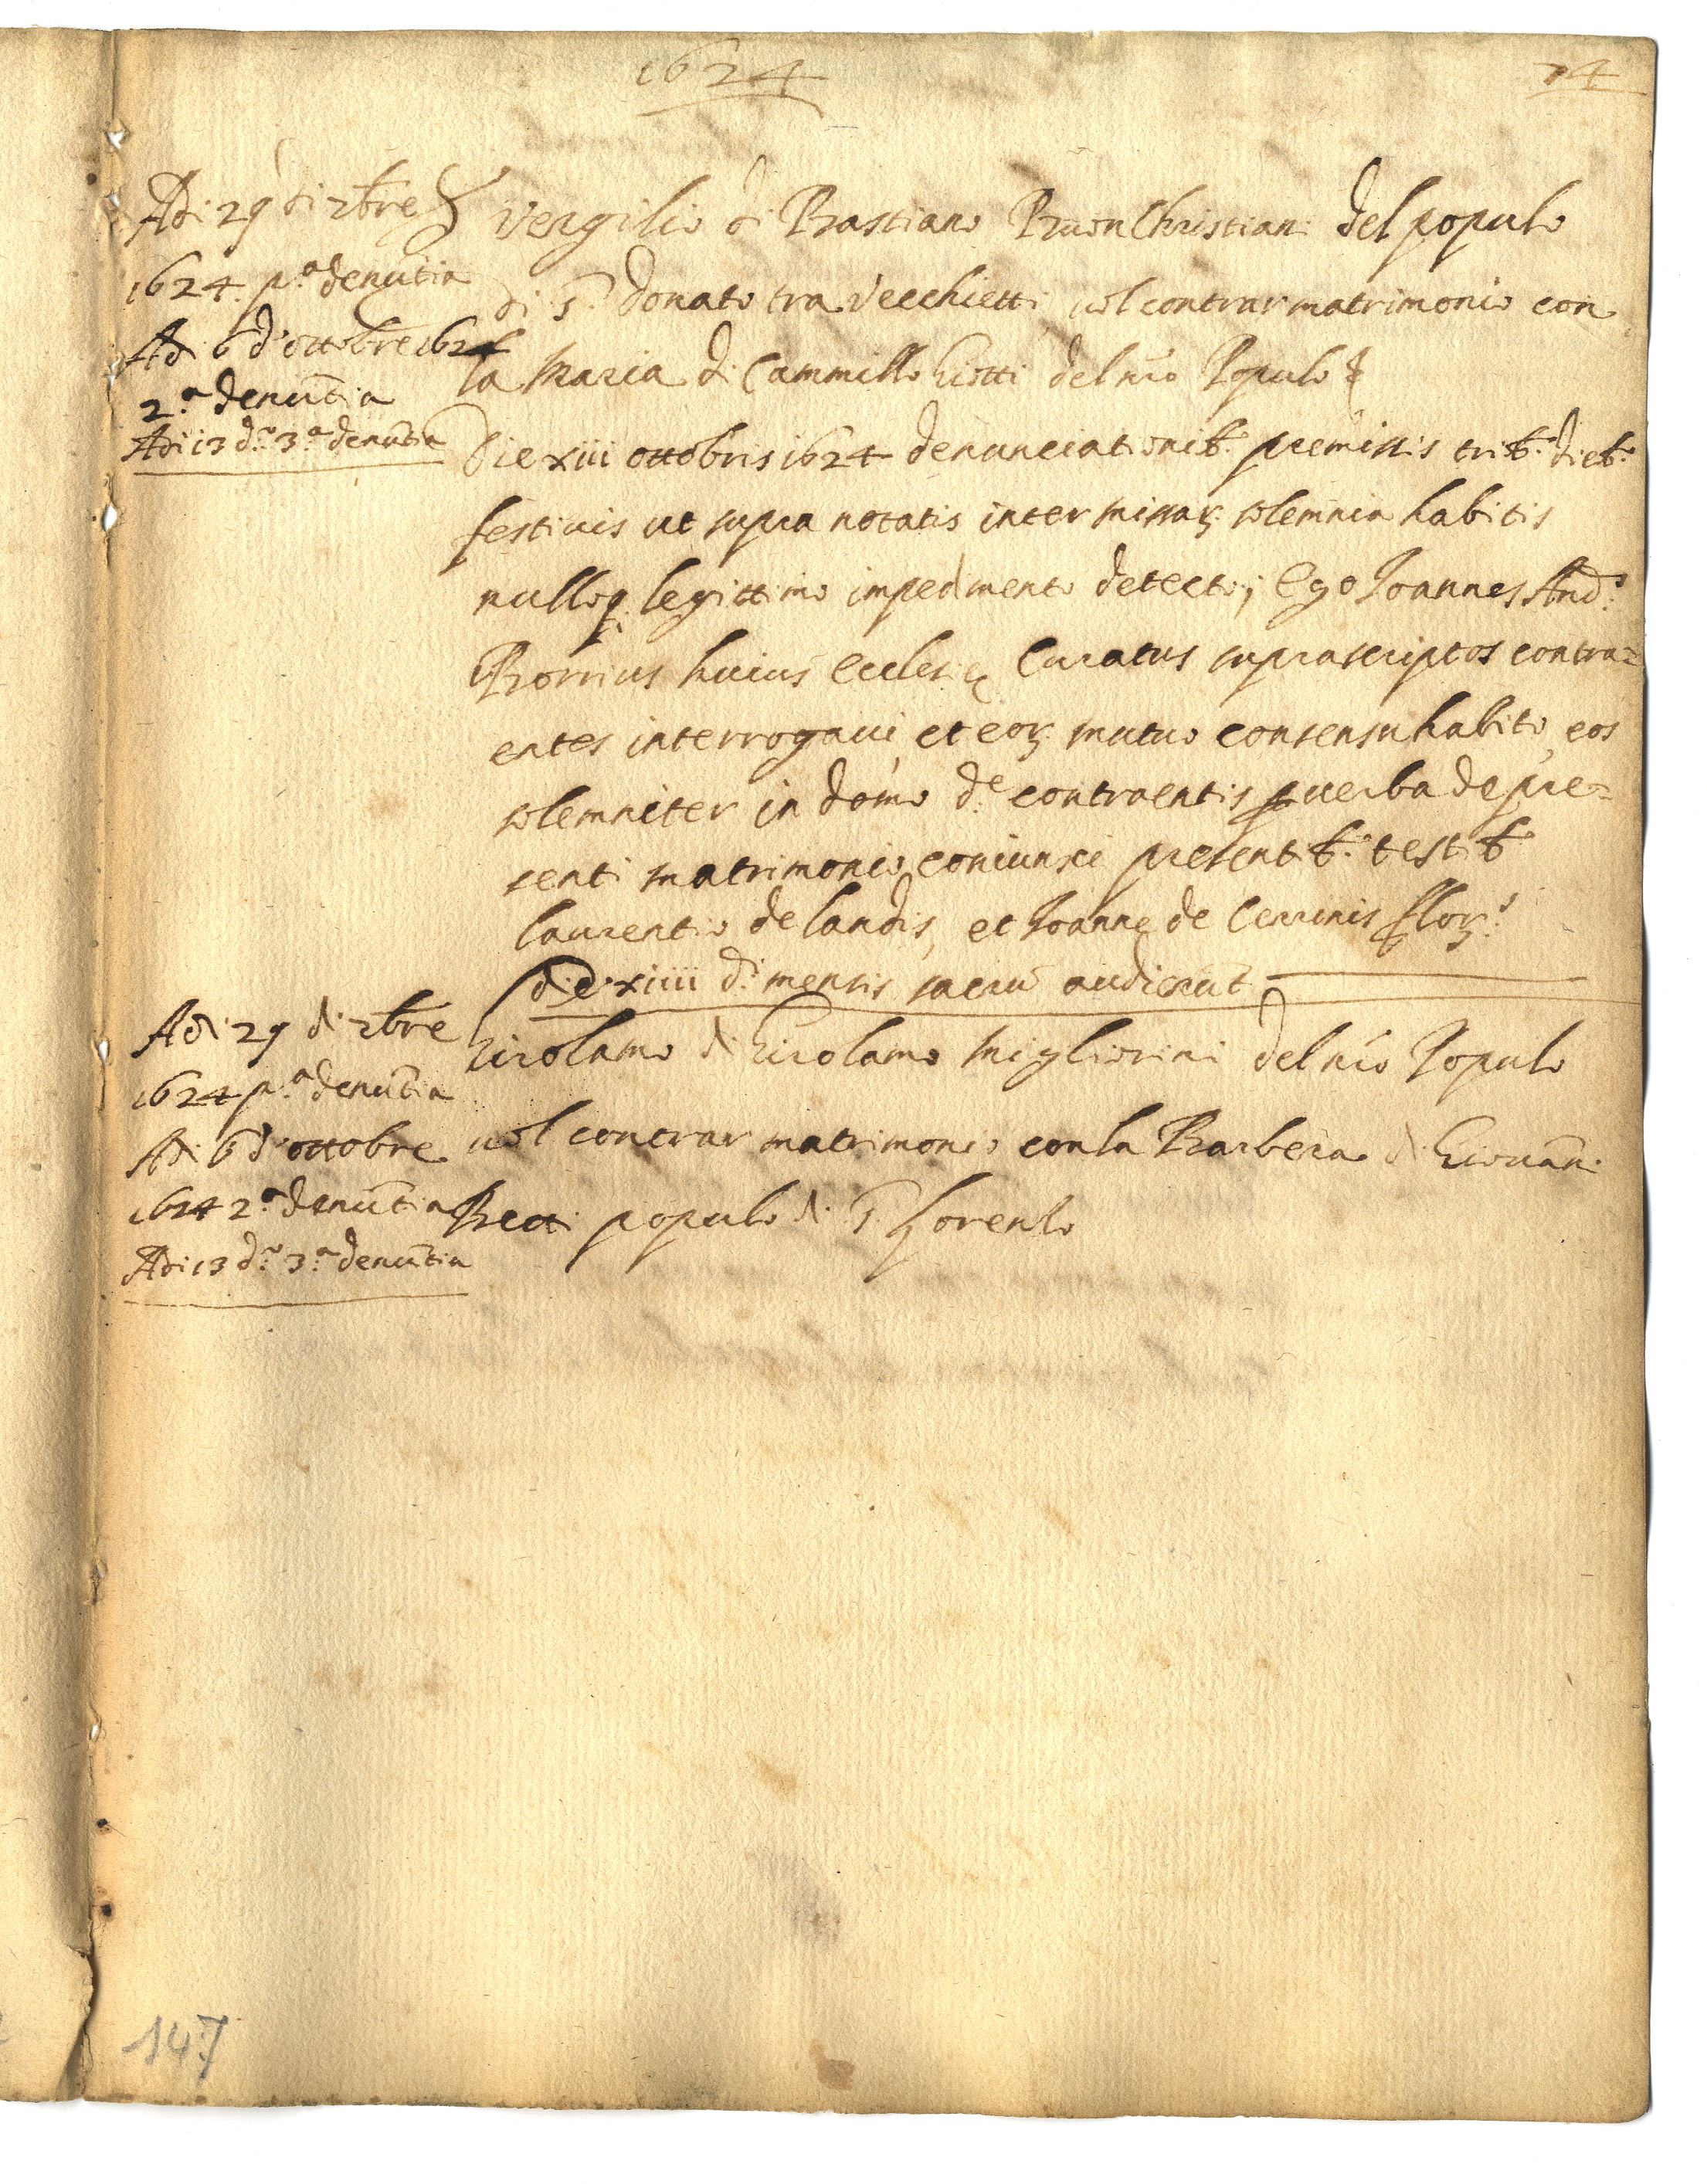 1624
74
Adi 29 di 7bre
1624. pa. denutia
Adi 6 d'ottobre 1624
2.a denũtia
Adi 13 d.o 3.a denũtia
Vergilio di Bastiano BuonChristiani del populo
di S. Donato tra Vecchietti uol contrar matrimonio con
la Maria di Cammillo Giotti del nrõ Populo
Die xiii ottobris 1624 denunciationib. premissis trib. dieb.
festiuis ut supra notatis inter missaꝝ solemnia habitis
nulloq. legittimo impedimento detecto; Ego Joannes And.s
huius Ecclesię Curatus suprascriptos contra=
entes interrogaui et eoꝝ mutuo consensu habito, eos
solemniter in domo d.e contraentis ꝑ uerba de pre=
senti matrimonio coniunxi presentib. testib
laurentio de landis, et Joanne de Cerrinis floꝝ.s
die xiiii d.i mensis sacrũ audierũt
Adi 29 di 7bre
1624 pa. denũtia
Adi 6 d'ottobre
1624 2.a denũtia
Adi 13 d.o 3.a denũtia
Girolamo di Girolamo Migliorini del nrõ Populo
uol contrar matrimonio con la Barbera di Giouãni
Betti populo di S Lorenzo
147